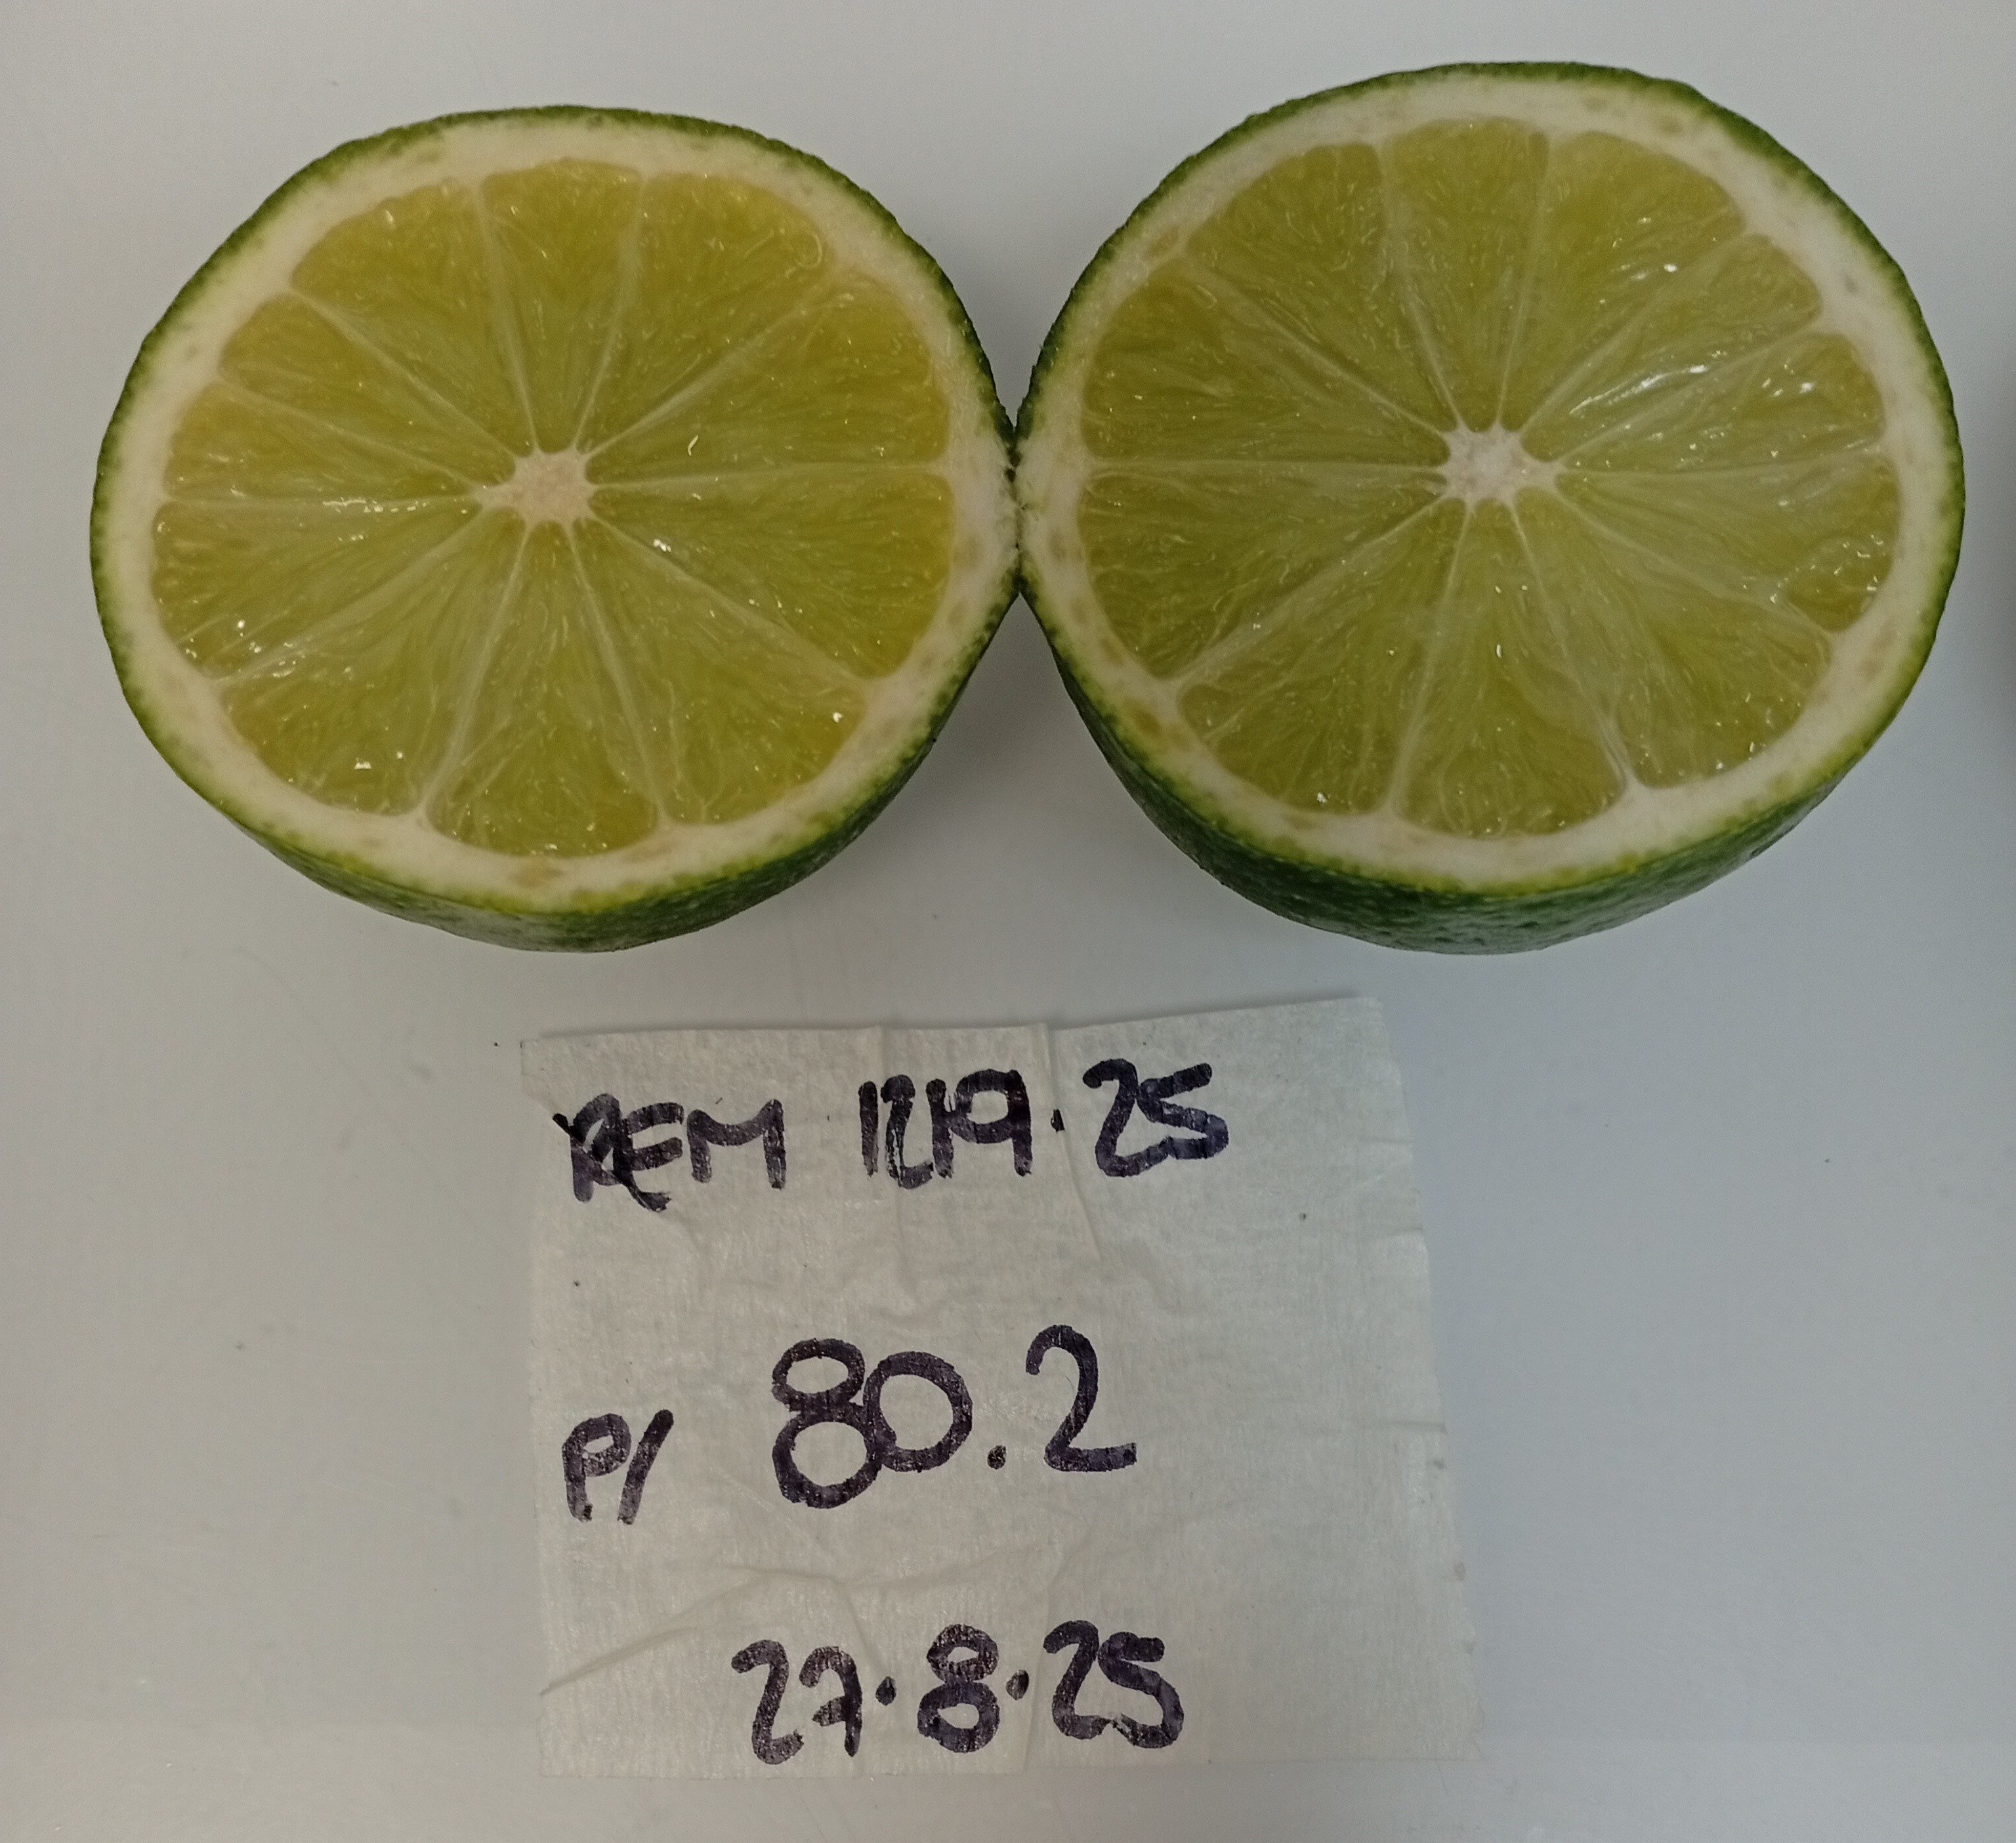 REM 1219.25
P/ 80.2
27.8.25